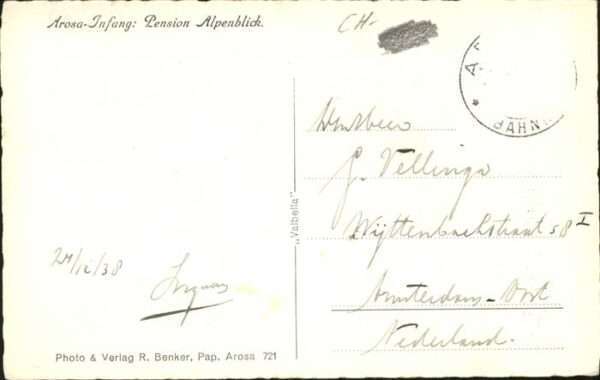 Arosa-Infang: Pension Alpenblick.
CH-
BAHN
„Valbella"
G. Vellinga
Wijttenbachstraat 58 I
Amsterdam-Oost
Nederland.
24/12/38
Photo & Verlag R. Benker, Pap. Arosa 721